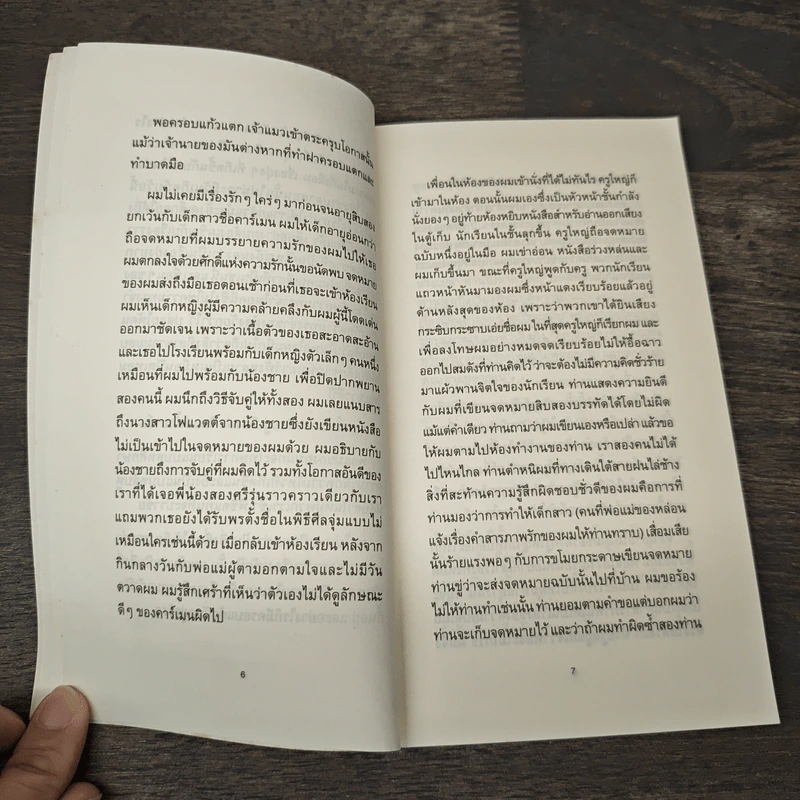 พอครอบแก้วแตก เจ้าแมวเข้าตระครุบโอกาสนั้น
แม้ว่าเจ้านายของมันต่างหากที่ทำฝาครอบแตกและ
ทำบาดมือ
ผมไม่เคยมีเรื่องรักๆ ใคร่ๆ มาก่อนจนอายุสิบสอง
ยกเว้นกับเด็กสาวชื่อคาร์เมน ผมให้เด็กอายุอ่อนกว่า
ถือจดหมายที่ผมบรรยายความรักของผมไปให้เธอ
ผมตกลงใจด้วยศักดิ์แห่งความรักนั้นขอนัดพบ จดหมาย
ของผมส่งถึงมือเธอตอนเช้าก่อนที่เธอจะเข้าห้องเรียน
ผมเห็นเด็กหญิงผู้มีความคล้ายคลึงกับผมผู้นี้โดดเด่น
ออกมาชัดเจน เพราะว่าเนื้อตัวของเธอสะอาดสะอ้าน
และเธอไปโรงเรียนพร้อมกับเด็กหญิงตัวเล็กๆ คนหนึ่ง
เหมือนที่ผมไปพร้อมกับน้องชาย เพื่อปิดปากพยาน
สองคนนี้ ผมนึกถึงวิธีจับคู่ให้ทั้งสอง ผมเลยแนบสาร
ถึงนางสาวโฟแวตต์จากน้องชายซึ่งยังเขียนหนังสือ
ไม่เป็นเข้าไปในจดหมายของผมด้วย ผมอธิบายกับ
น้องชายถึงการจับคู่ที่ผมคิดไว้ รวมทั้งโอกาสอันดีของ
เราที่ได้เจอพี่น้องสองศรีรุ่นราวคราวเดียวกับเรา
แถมพวกเธอยังได้รับพรตั้งชื่อในพิธีศีลจุ่มแบบไม่
เหมือนใครเช่นนี้ด้วย เมื่อกลับเข้าห้องเรียน หลังจาก
กินกลางวันกับพ่อแม่ผู้ตามอกตามใจและไม่มีวัน
ตวาดผม ผมรู้สึกเศร้าที่เห็นว่าตัวเองไม่ได้ดูลักษณะ
ดีๆ ของคาร์เมนผิดไป
6
เพื่อนในห้องของผมเข้านั่งที่ได้ไม่ทันไร ครูใหญ่ก็
เข้ามาในห้อง ตอนนั้นผมเองซึ่งเป็นหัวหน้าชั้นกำลัง
นั่งยองๆ อยู่ท้ายห้องหยิบหนังสือสำหรับอ่านออกเสียง
ในตู้เก็บ นักเรียนในชั้นลุกขึ้น ครูใหญ่ถือจดหมาย
ฉบับหนึ่งอยู่ในมือ ผมเข่าอ่อน หนังสือร่วงหล่นและ
ผมเก็บขึ้นมา ขณะที่ครูใหญ่พูดกับครู พวกนักเรียน
แถวหน้าหันมามองผมซึ่งหน้าแดงเรียบร้อยแล้วอยู่
ด้านหลังสุดของห้อง เพราะว่าพวกเขาได้ยินเสียง
กระซิบกระซาบเอ่ยชื่อผม ในที่สุดครูใหญ่ก็เรียกผม และ
เพื่อลงโทษผมอย่างหมดจดเรียบร้อยไม่ให้อื้อฉาว
ออกไปสมดังที่ท่านคิดไว้ ว่าจะต้องไม่มีความคิดชั่วร้าย
มาแผ้วพานจิตใจของนักเรียน ท่านแสดงความยินดี
กับผมที่เขียนจดหมายสิบสองบรรทัดได้โดยไม่ผิด
แม้แต่คำเดียว ท่านถามว่าผมเขียนเองหรือเปล่า แล้วขอ
ให้ผมตามไปห้องทำงานของท่าน เราสองคนไม่ได้
ไปไหนไกล ท่านตำหนิผมที่ทางเดินใต้สายฝนไล่ช้าง
สิ่งที่สะท้านความรู้สึกผิดชอบชั่วดีของผมคือการที่
ท่านมองว่าการทำให้เด็กสาว (คนที่พ่อแม่ของหล่อน
แจ้งเรื่องคำสารภาพรักของผมให้ท่านทราบ) เสื่อมเสีย
นั้นร้ายแรงพอๆ กับการขโมยกระดาษเขียนจดหมาย
ท่านขู่ว่าจะส่งจดหมายฉบับนั้นไปที่บ้าน ผมขอร้อง
ไม่ให้ท่านทำเช่นนั้น ท่านยอมตามคำขอแต่บอกผมว่า
ท่านจะเก็บจดหมายไว้ และว่าถ้าผมทำผิดซ้ำสองท่าน
7